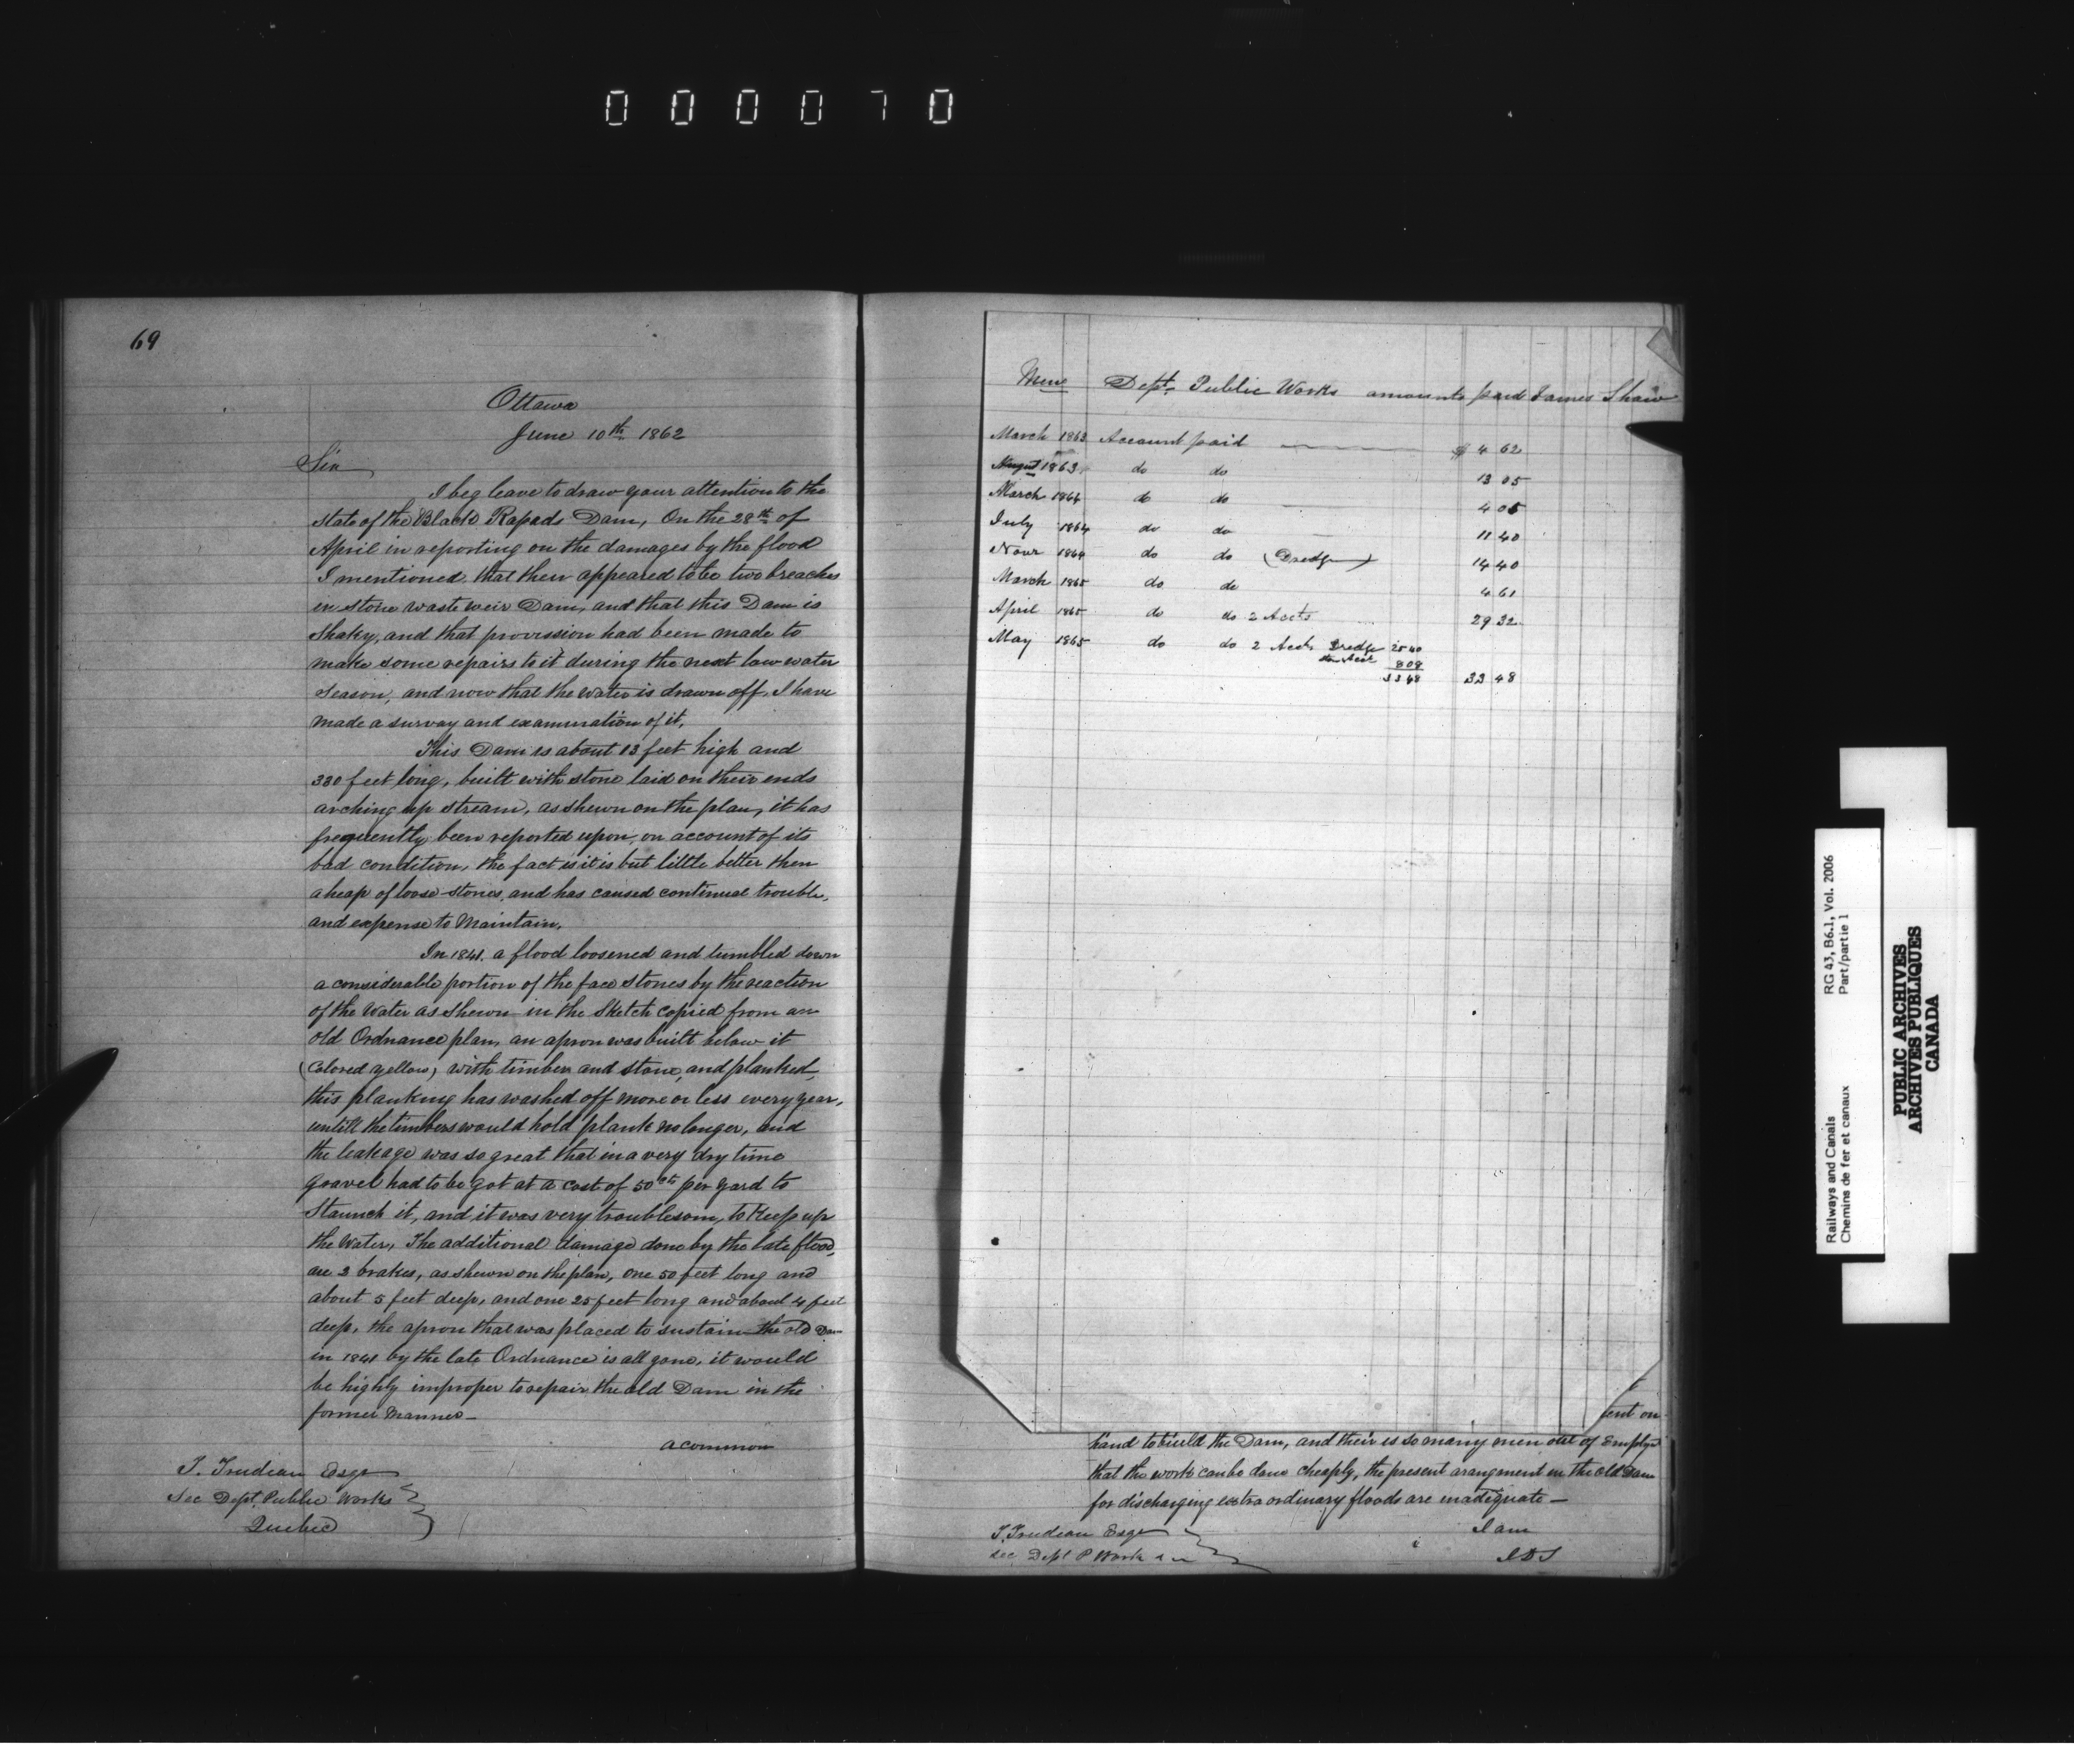 000070
69
Ottawa
June 10th 1862
Sir
I beg leave to draw your attention to the
state of the Black Rapids Dam, On the 28th of
April in reporting on the damages by the flood
I mentioned that their appeared to be two breaches
in stone waste weir Dam, and that this Dam is
Shaky, and that provission had been made to
make some repairs to it during the next low water
season, and now that the water is drawn off, I have
made a survay and examination of it.
This Dam is about 13 feet high and
330 feet long, built with stone laid on their ends
arching up stream, as shewn on the plan, it has
frequently been reported upon, on account of its
bad condition, the fact is it is but little better then
a heap of loose stones, and has caused continual trouble,
and expense to Maintain.
In 1841. a flood loosened and tumbled down
a considerable portion of the face stones by the reaction
of the Water as Shewn in the Sketch copied from an
old Ordnance plan, an apron was built below it
(Colored yellow) with timber and stone, and planked,
this planking has washed off more or less every year,
untill the timbers would hold plank no longer, and
the leakage was so great that in a very dry time
gravel had to be got at a cost of 50cts per yard to
Staunch it, and it was very troublesom, to Keep up
the Water, The additional damage done by the late flood,
are 2 brakes, as shewn on the plan, one 50 feet long and
about 5 feet deep, and one 25 feet long and about 4 feet
deep, the apron that was placed to sustain the old Dam
in 1841 by the late Ordnance is all gone, it would
be highly improper to repair the old Dam in the
former Manner—
a common
T. Trudeau Esqr
Sec Dept. Public Works
Quebec
Memo Dept. Public Works amounts paid James Shaw
March 1863 Account paid $ 4 62
August 1863 do do 13 05
March 1864 do do 4 05
July 1864 do do 11 40
Novr 1864 do do (Dredge) 14 40
March 1865 do do 4 61
April 1865 do do 2 Accts 29 32
May 1865 do do 2 Accts Dredge 25 40
Acct 8 08
33 48 33 48
ent on
hand to build the Dam, and their is so many men out of Employ
that the work can be done cheaply, the present arangment in the old Dam
for discharging extra ordinary floods are inadequate—
I am
T. Trudeau Esqr
Sec Dept P Work
JDS
Railways and Canals
Chemins de fer et canaux
RG 43, B6.1, Vol. 2006
Part/partie 1
PUBLIC ARCHIVES
ARCHIVES PUBLIQUES
CANADA